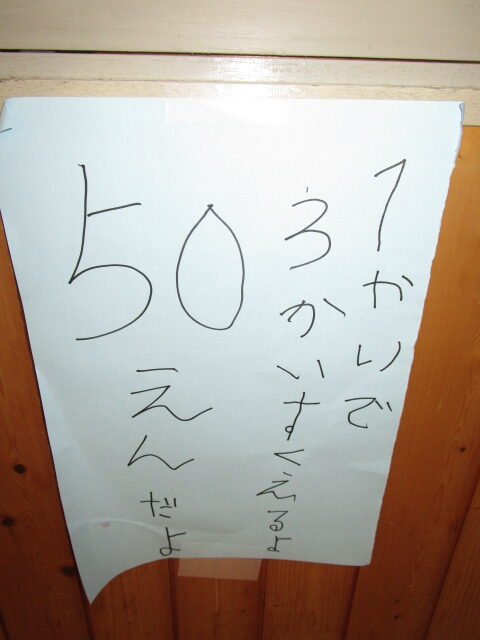 1かいで
3かいすくえるよ
50
えんだよ